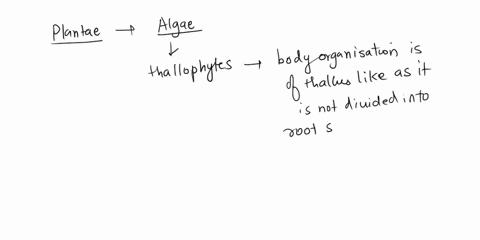 Plantae → Algae
↓
thallophytes → body organisation is
of thallus like as it
is not divided into
root s